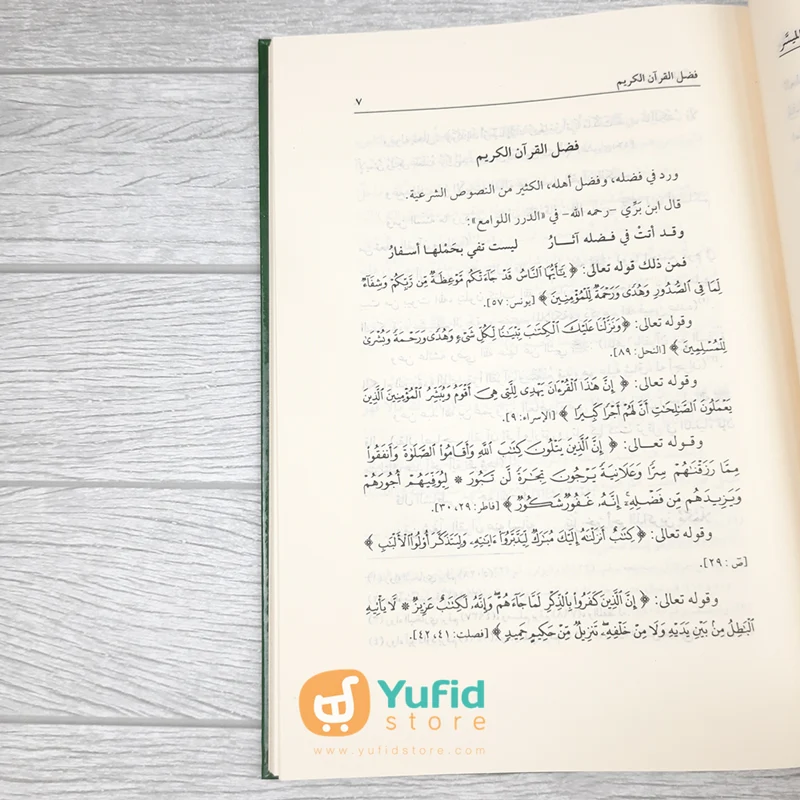 فضل القرآن الكريم
٧
فضل القرآن الكريم
ورد في فضله، وفضل أهله، الكثير من النصوص الشرعية.
قال ابن بَرِّي -رحمه الله- في «الدرر اللوامع»:
وقد أتتْ في فضله آثـارُ ليست تفي بحَملهَا أسفارُ
فمن ذلك قوله تعالى: ﴿ يَٰٓأَيُّهَا ٱلنَّاسُ قَدْ جَآءَتْكُم مَّوْعِظَةٌ مِّن رَّبِّكُمْ وَشِفَآءٌ
لِّمَا فِى ٱلصُّدُورِ وَهُدًى وَرَحْمَةٌ لِّلْمُؤْمِنِينَ ﴾ [يونس: ٥٧].
وقوله تعالى: ﴿وَنَزَّلْنَا عَلَيْكَ ٱلْكِتَٰبَ تِبْيَٰنًا لِّكُلِّ شَىْءٍ وَهُدًى وَرَحْمَةً وَبُشْرَىٰ
لِلْمُسْلِمِينَ ﴾ [النحل: ٨٩].
وقوله تعالى: ﴿ إِنَّ هَٰذَا ٱلْقُرْءَانَ يَهْدِى لِلَّتِى هِىَ أَقْوَمُ وَيُبَشِّرُ ٱلْمُؤْمِنِينَ ٱلَّذِينَ
يَعْمَلُونَ ٱلصَّٰلِحَٰتِ أَنَّ لَهُمْ أَجْرًا كَبِيرًا ﴾ [الإسراء: ٩].
وقوله تعـالى: ﴿ إِنَّ ٱلَّذِينَ يَتْلُونَ كِتَٰبَ ٱللَّهِ وَأَقَامُوا۟ ٱلصَّلَوٰةَ وَأَنفَقُوا۟
مِمَّا رَزَقْنَٰهُمْ سِرًّا وَعَلَانِيَةً يَرْجُونَ تِجَٰرَةً لَّن تَبُورَ * لِيُوَفِّيَهُمْ أُجُورَهُمْ
وَيَزِيدَهُم مِّن فَضْلِهِۦٓ إِنَّهُۥ غَفُورٌ شَكُورٌ ﴾ [فاطر: ٢٩، ٣٠].
وقوله تعالى: ﴿ كِتَٰبٌ أَنزَلْنَٰهُ إِلَيْكَ مُبَٰرَكٌ لِّيَدَّبَّرُوٓا۟ ءَايَٰتِهِۦ وَلِيَتَذَكَّرَ أُو۟لُوا۟ ٱلْأَلْبَٰبِ ﴾
[صٓ: ٢٩].
وقوله تعالى: ﴿ إِنَّ ٱلَّذِينَ كَفَرُوا۟ بِٱلذِّكْرِ لَمَّا جَآءَهُمْ وَإِنَّهُۥ لَكِتَٰبٌ عَزِيزٌ * لَّا يَأْتِيهِ
ٱلْبَٰطِلُ مِنۢ بَيْنِ يَدَيْهِ وَلَا مِنْ خَلْفِهِۦ تَنزِيلٌ مِّنْ حَكِيمٍ حَمِيدٍ ﴾ [فصلت: ٤١، ٤٢].
Yufid
store
www.yufidstore.com